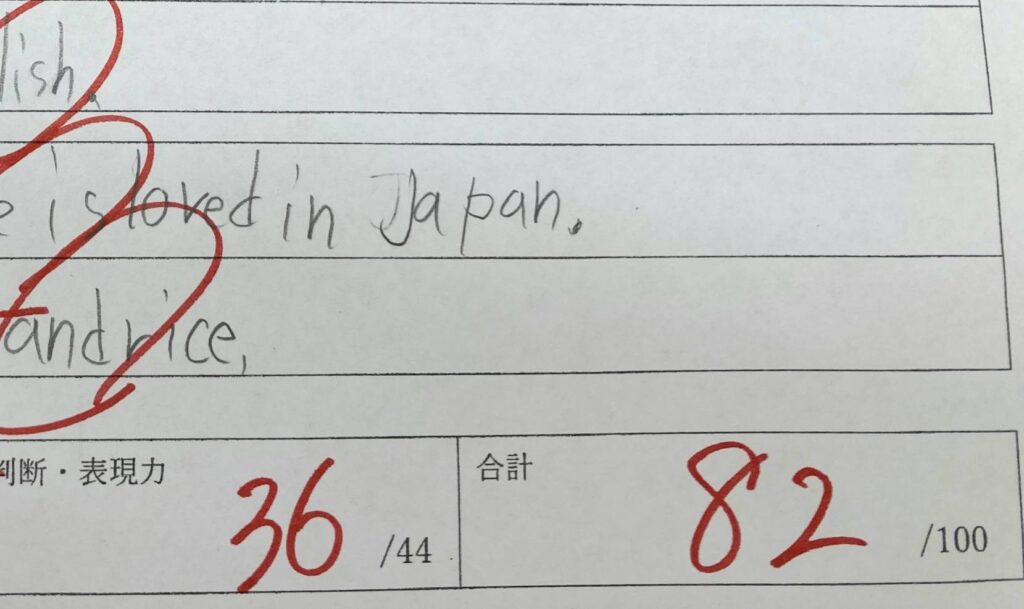 lish.
e is loved in Japan.
and rice,
判断・表現力 36 /44 合計 82 /100